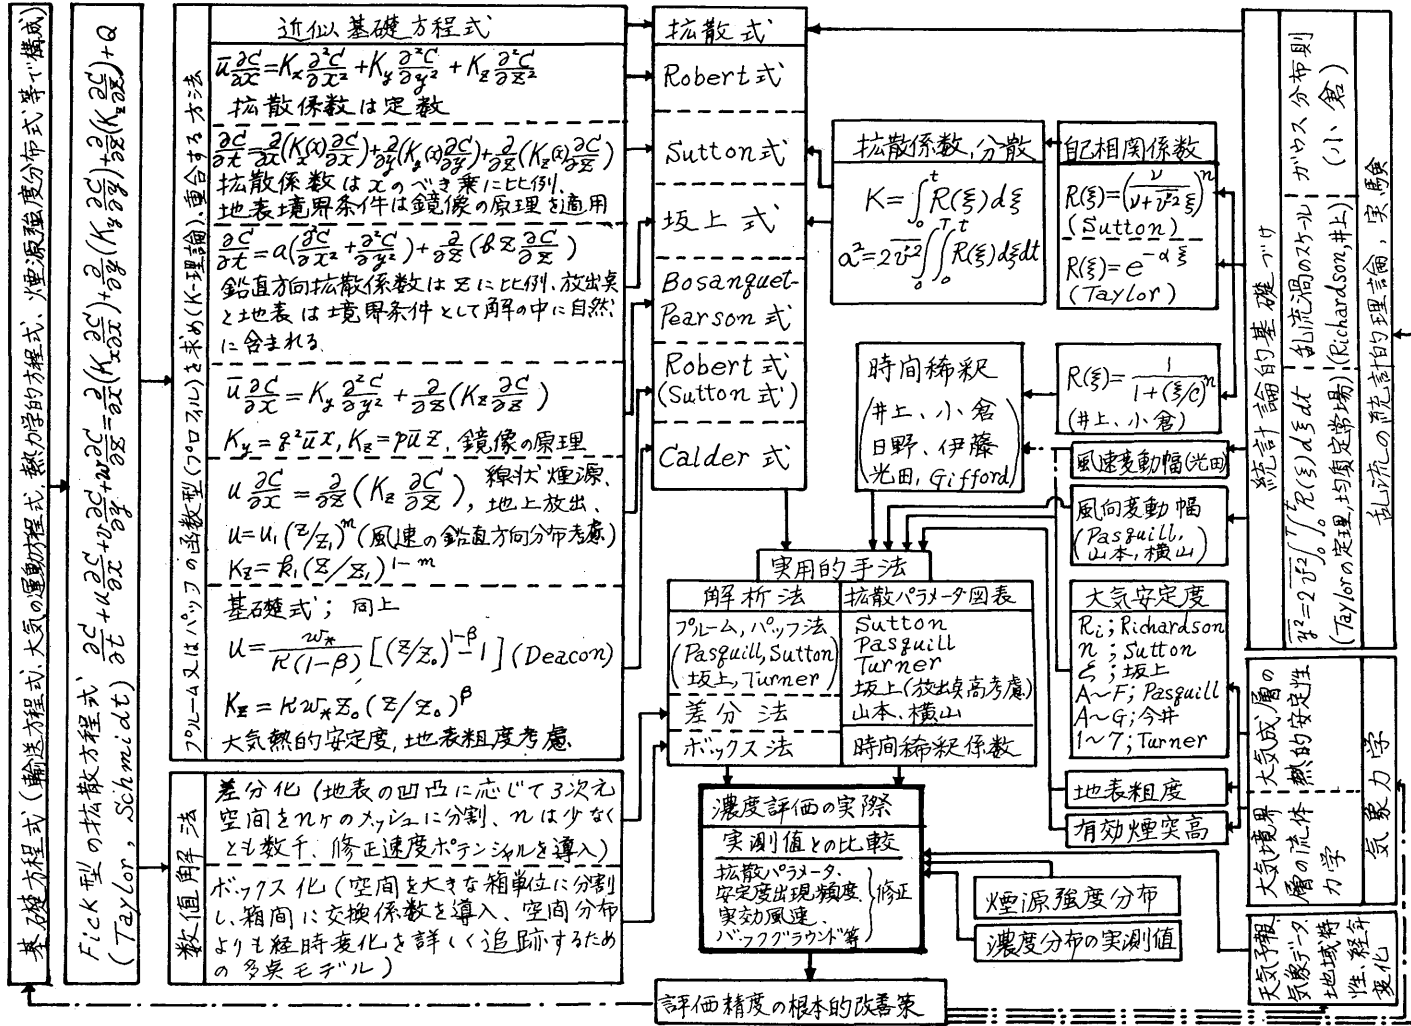 基礎方程式(輸送方程式、大気の運動方程式、熱力学的方程式、煙源強度分布式等で構成)
Fick型の拡散方程式 ∂C/∂t+u∂C/∂x+v∂C/∂y+w∂C/∂z=∂/∂x(Kx∂C/∂x)+∂/∂y(Ky∂C/∂y)+∂/∂z(Kz∂C/∂z)+Q
(Taylor, Schmidt)
プルーム又はパッフの函数型(プロフィル)を求め(K-理論)、重合する方法
近似基礎方程式
ū∂C/∂x=Kx∂²C/∂x²+Ky∂²C/∂y²+Kz∂²C/∂z²
拡散係数は定数
∂C/∂t=∂/∂x(Kx(x)∂C/∂x)+∂/∂y(Ky(x)∂C/∂y)+∂/∂z(Kz(x)∂C/∂z)
拡散係数はxのべき乗に比例、
地表境界条件は鏡像の原理を適用
∂C/∂t=a(∂²C/∂x²+∂²C/∂y²)+∂/∂z(bz∂C/∂z)
鉛直方向拡散係数はzに比例、放出点
と地表は境界条件として解の中に自然
に含まれる.
ū∂C/∂x=Ky∂²C/∂y²+∂/∂z(Kz∂C/∂z)
Ky=q²ūx, Kz=pūz, 鏡像の原理
u∂C/∂x=∂/∂z(Kz∂C/∂z), 線状煙源、
地上放出、
u=u₁(z/z₁)^m(風速の鉛直方向分布考慮)
Kz=k₁(z/z₁)^1-m
基礎式;同上
u=w*/κ(1-β)[(z/z₀)^1-β-1](Deacon)
Kz=κw*z₀(z/z₀)^β
大気熱的安定度,地表粗度考慮
数値解法
差分化(地表の凹凸に応じて3次元
空間をnケのメッシュに分割、nは少なく
とも数千、修正速度ポテンシャルを導入)
ボックス化(空間を大きな箱単位に分割
し、箱間に交換係数を導入、空間分布
よりも経時変化を詳しく追跡するため
の多点モデル)
拡散式
Robert式
Sutton式
坂上式
Bosanquet-
Pearson式
Robert式
(Sutton式)
Calder式
拡散係数,分散
K=∫₀^t R(ξ)dξ
α²=2v̄²∫₀^T∫₀^t R(ξ)dξdt
自己相関係数
R(ξ)=(ν/ν+v̄²ξ)^n
(Sutton)
R(ξ)=e^-αξ
(Taylor)
時間稀釈
(井上、小倉
日野、伊藤
光田, Gifford)
R(ξ)=1/1+(ξ/C)^n
(井上、小倉)
風速変動幅(光田)
風向変動幅
(Pasquill,
山本,横山)
実用的手法
解析法
プルーム,パッフ法
(Pasquill, Sutton
坂上, Turner)
差分法
ボックス法
拡散パラメータ図表
Sutton
Pasquill
Turner
坂上(放出点高考慮)
山本、横山
時間稀釈係数
大気安定度
Ri;Richardson
n;Sutton
ξ;坂上
A~F;Pasquill
A~G;今井
1~7;Turner
地表粗度
有効煙突高
濃度評価の実際
実測値との比較
拡散パラメータ、
安定度出現頻度、
実効風速、
バックグラウンド等
修正
煙源強度分布
濃度分布の実測値
評価精度の根本的改善策
統計論的基礎づけ
ȳ²=2v̄²∫₀^T∫₀^t R(ξ)dξdt
(Taylorの定理,均質定常場)
乱流渦のスケール
(Richardson,井上)
ガウス分布則
(小倉)
乱流の統計的理論、実験
大気境界
層の流体
力学
大気成層の
熱的安定性
気象力学
天気予報、
気象データ、
地域特
性、経年
変化